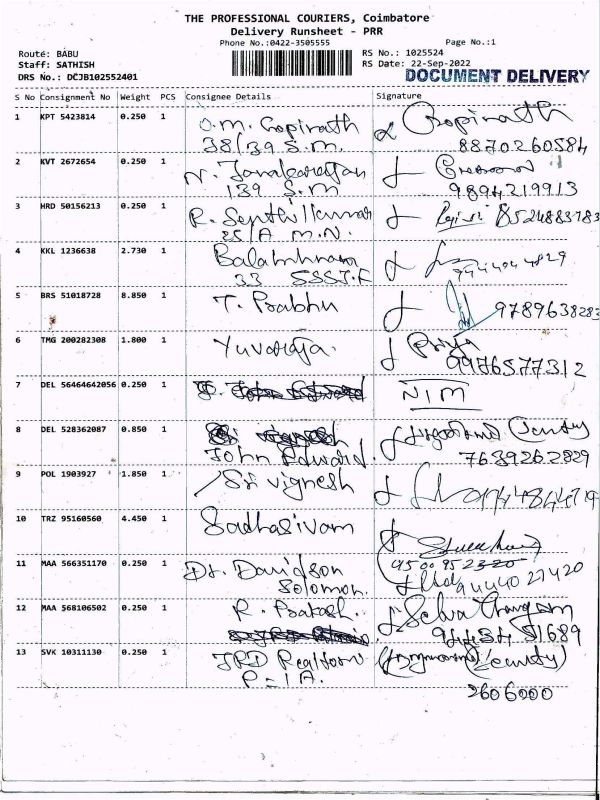 THE PROFESSIONAL COURIERS, Coimbatore
Delivery Runsheet - PRR
Phone No.:0422-3505555
Page No.:1
Route: BABU
RS No.: 1025524
Staff: SATHISH
RS Date: 22-Sep-2022
DRS No.: DCJB102552401
DOCUMENT DELIVERY
S No Consignment No Weight PCS Consignee Details Signature
1 KPT 5423814 0.250 1 O.M. Gopinath Gopinath
38/39 S.M. 8870260584
2 KVT 2672654 0.250 1 N. Janakarajan
139 S.M 9894219913
3 HRD 50156213 0.250 1 R. Senthilkumar 8524883783
35/A M.N.
4 KKL 1236638 2.730 1
33 SSST.F
5 BRS 51018728 8.850 1 T. Prabhu 9789638283
6 TMG 200282308 1.800 1 Yuvaraja. Priya
9976577312
7 DEL 56464642056 0.250 1 NIM
8 DEL 528362087 0.850 1
John Edward. 7639262829
9 POL 1903927 1.850 1 Sri vignesh
10 TRZ 95160560 4.450 1 Sadhasivam
11 MAA 566351170 0.250 1 Dr. Davidson
Solomon. 94440 27420
12 MAA 568106502 0.250 1 R. Prakash.
13 SVK 10311130 0.250 1 JRD
2606000